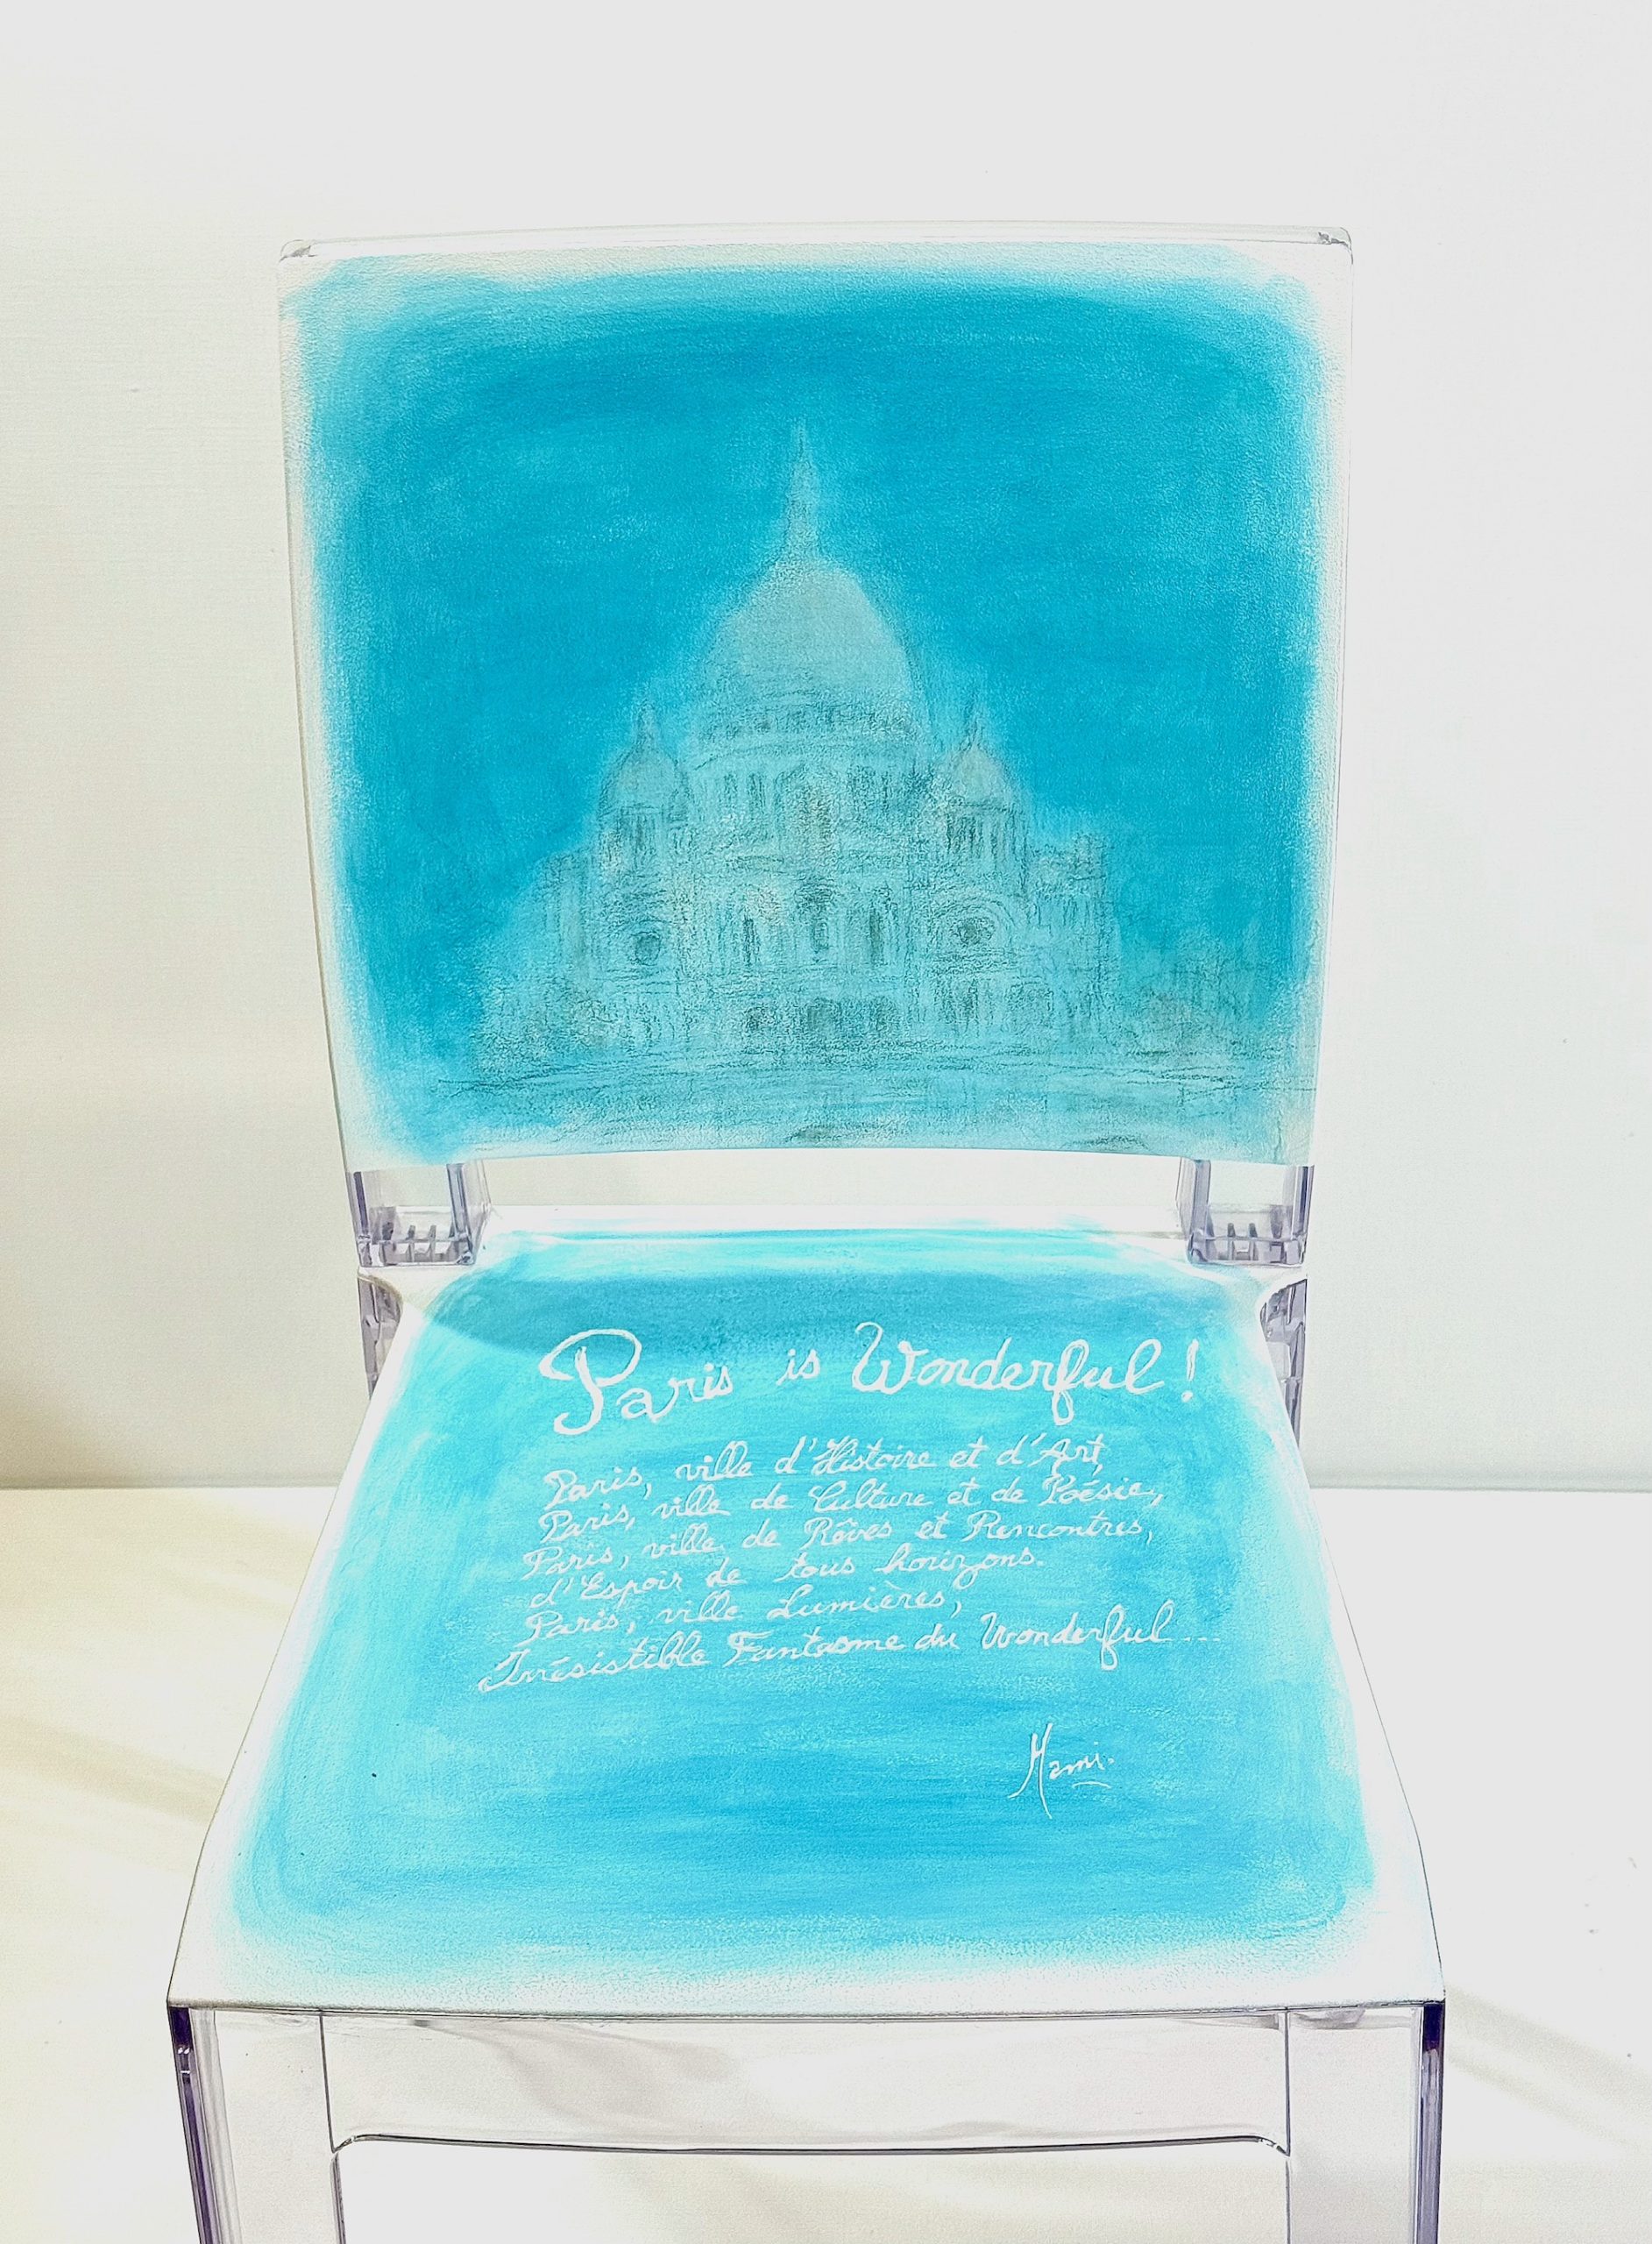 Paris is Wonderful!
Paris, ville d'Histoire et d'Art,
Paris, ville de Culture et de Poésie,
Paris, ville de Rêves et Rencontres,
d'Espoir de tous horizons.
Paris, ville Lumières,
Irrésistible Fantasme du Wonderful...
Mami.